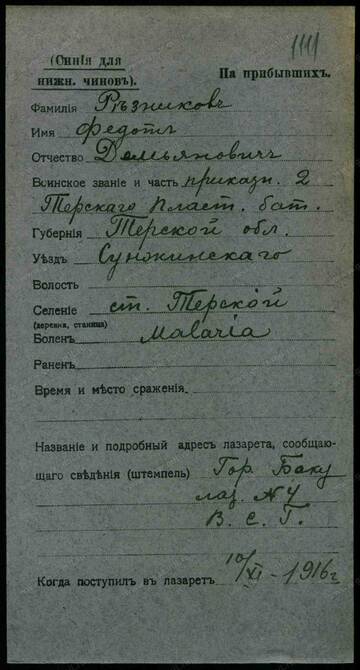 1111
(Синія для
нижн. чиновъ).
На прибывшихъ.
Фамилія Рѣзниковъ
Имя Федотъ
Отчество Демьяновичъ
Воинское званіе и часть приказн. 2
Терскаго пласт. бат.
Губернія Терской обл.
Уѣздъ Сунжинскаго
Волость
Селеніе ст. Терской
(деревня, станица)
Боленъ Malaria
Раненъ
Время и мѣсто сраженія
Названіе и подробный адресъ лазарета, сообщаю-
щаго свѣдѣнія (штемпель) Гор. Баку
лаз. №4
В. С. Г.
Когда поступилъ въ лазаретъ 10/XI - 1916 г